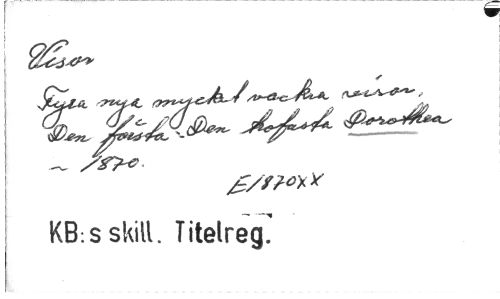 Visor
Fyra nya mycket vackra visor.
Den första: Den trofasta Dorothea
~ 1870.
E1870XX
KB:s skill. Titelreg.